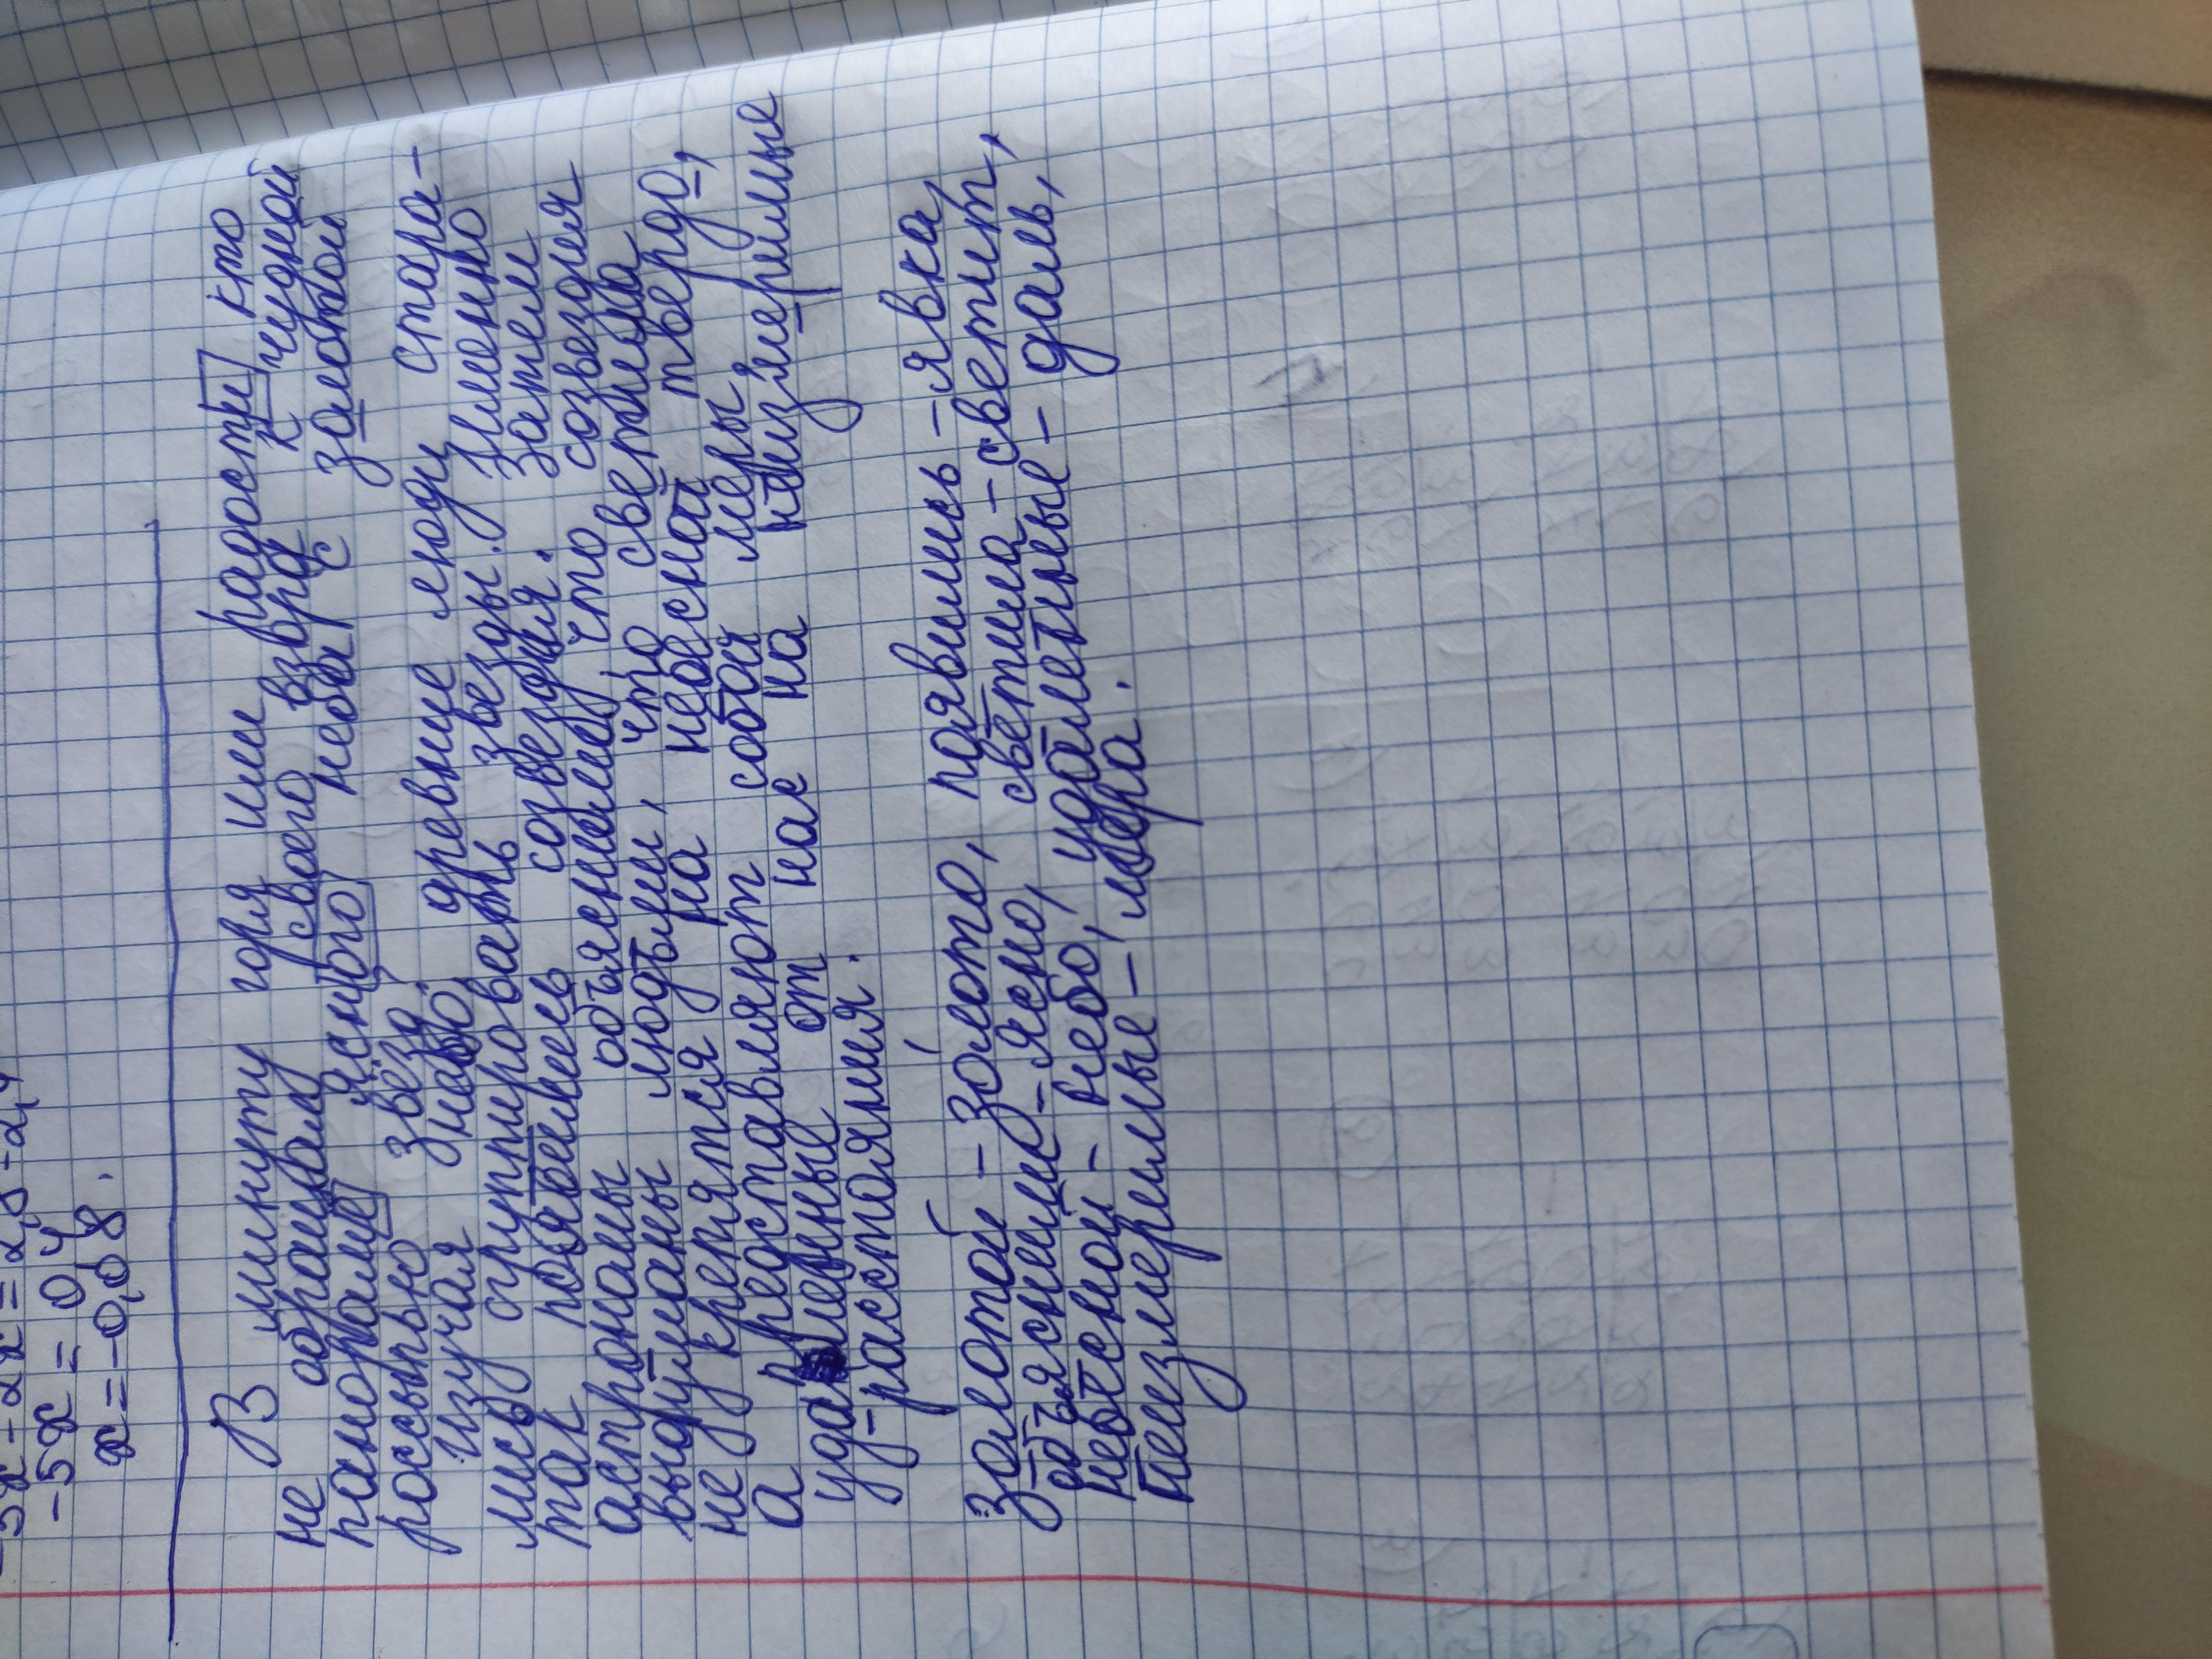 -5x = 0,4
x = -0,08.
В минуту горя или радости кто
не обращал своего взора к чудной
панораме ясного неба с золотой
россыпью звёзд.
Изучая небо, древние люди стара-
лись группировать звезды. Именно
так появились созвездия. Затем
астрономы объяснили, что созвездия
выдуманы людьми, что светила
не крепятся на небесной тверди,
а представляют собой меры
удаленные от нас на неизмеримые
расстояния.
Золотой - золото, появились - явка,
объяснили - ясно, светила - светит,
небесной - небо, удалённые - даль,
неизмеримые - мера.